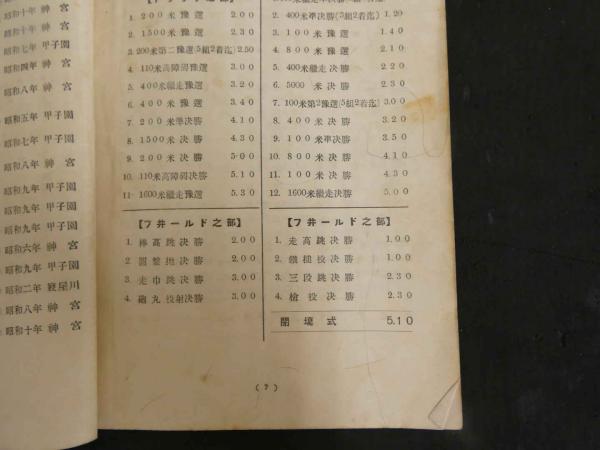 昭和十年 神宮
昭和十年 神宮
昭和七年 甲子園
昭和四年 神宮
昭和八年 神宮
昭和五年 甲子園
昭和七年 甲子園
昭和八年 神宮
昭和九年 甲子園
昭和九年 甲子園
昭和九年 甲子園
昭和六年 神宮
昭和九年 甲子園
昭和二年 寝屋川
昭和八年 神宮
昭和十年 神宮
1. 200米豫選 2.00
2. 1500米豫選 2.30
3. 200米第二豫選(5組2着迄) 2.50
4. 110米高障碍豫選 3.00
5. 400米繼走豫選 3.20
6. 400米豫選 3.40
7. 200米準決勝 4.10
8. 1500米決勝 4.30
9. 200米決勝 5.00
10. 110米高障碍決勝 5.10
11. 1600米繼走豫選 5.30
【フ井ールド之部】
1. 棒高跳決勝 2.00
2. 圓盤抛決勝 2.00
3. 走巾跳決勝 3.00
4. 砲丸投射決勝 3.00
2. 400米準決勝(5組2着迄) 1.20
3. 100米豫選 1.40
4. 800米豫選 2.10
5. 400米繼走決勝 2.20
6. 5000米決勝 2.30
7. 100米第2豫選(5組2着迄) 3.00
8. 400米決勝 3.20
9. 100米準決勝 3.50
10. 800米決勝 4.10
11. 100米決勝 4.30
12. 1600米繼走決勝 5.00
【フ井ールド之部】
1. 走高跳決勝 1.00
2. 鐵槌投決勝 1.00
3. 三段跳決勝 2.30
4. 槍投決勝 2.30
閉塲式 5.10
(7)